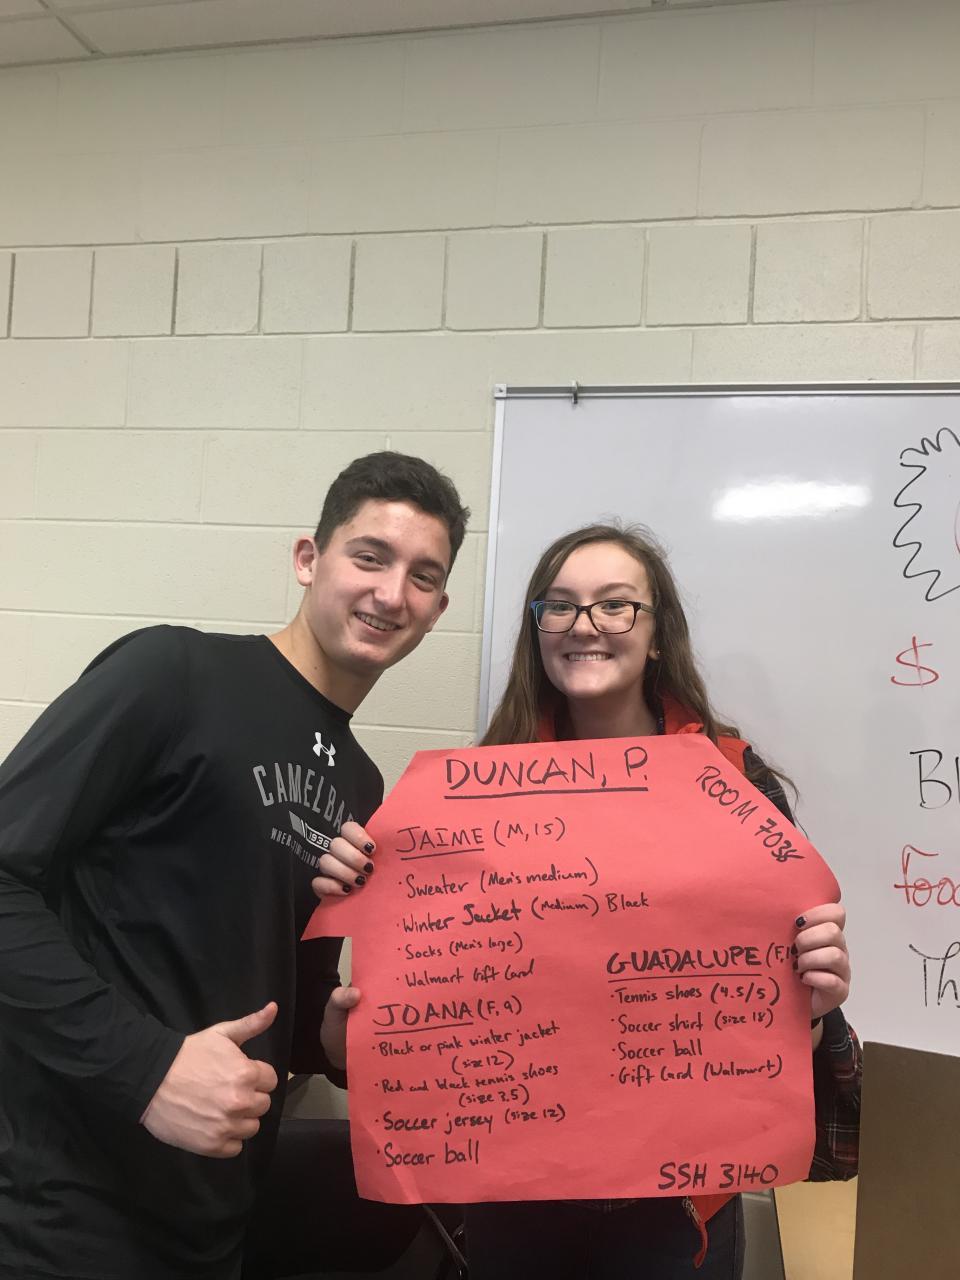 DUNCAN, P.
ROOM 7038
JAIME (M, 15)
· Sweater (Men's medium)
· Winter Jacket (Medium) Black
· Socks (Men's large)
· Walmart Gift Card
JOANA (F, 9)
· Black or pink winter jacket
(size 12)
· Red and black tennis shoes
(size 3.5)
· Soccer jersey (size 12)
· Soccer ball
GUADALUPE (F,
· Tennis shoes (4.5/5)
· Soccer shirt (size 18)
· Soccer ball
· Gift Card (Walmart)
SSH 3140
CAMELBA
1936
$
Bl
Foo
Th